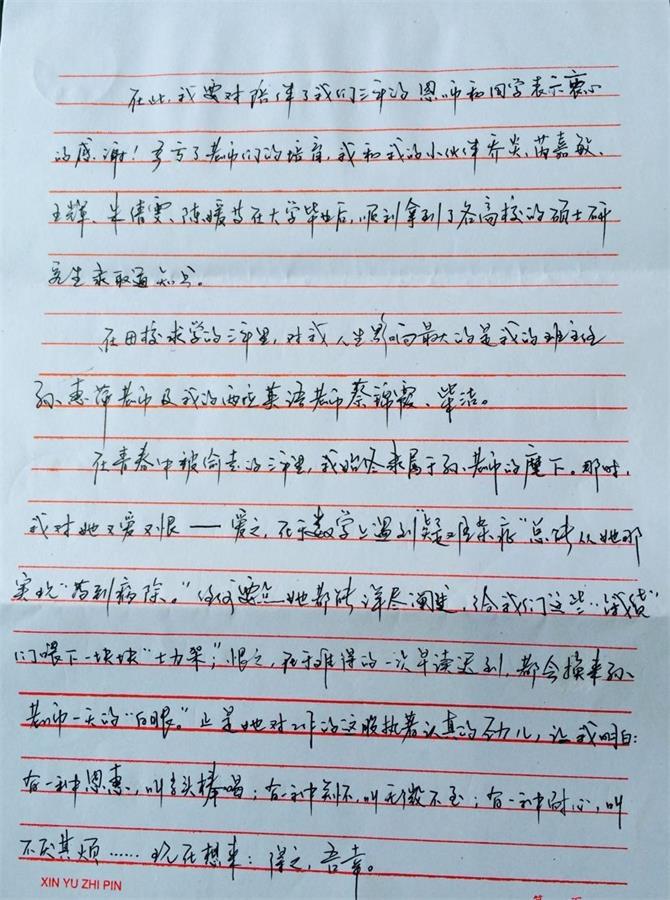 在此，我要对陪伴了我们三年的恩师和同学表示衷心
的感谢！多亏了老师们的培育，我和我的小伙伴乔炎、芮嘉敏、
王辉、朱倩雯、陈媛等在大学毕业后，顺利拿到了各高校的硕士研
究生录取通知书。
在田校求学的三年里，对我人生影响最大的是我的班主任
孙惠萍老师及我的两位英语老师蔡锦霞、毕洁。
在青春中被偷走的三年里，我始终隶属于孙老师的麾下。那时，
我对她又爱又恨——爱之，在于数学上遇到"疑难杂症"总能从她那
实现"药到病除。"任何要点她都能详尽阐述，给我们这些"饿货"
们喂下一块块"士力架"；恨之，在于难得的一次早读迟到，都会换来孙
老师一天的"白眼。"正是她对工作的这股执着认真的劲儿，让我明白：
有一种恩惠，叫当头棒喝；有一种关怀，叫无微不至；有一种耐心，叫
不厌其烦……现在想来：得之，吾幸。
XIN YU ZHI PIN